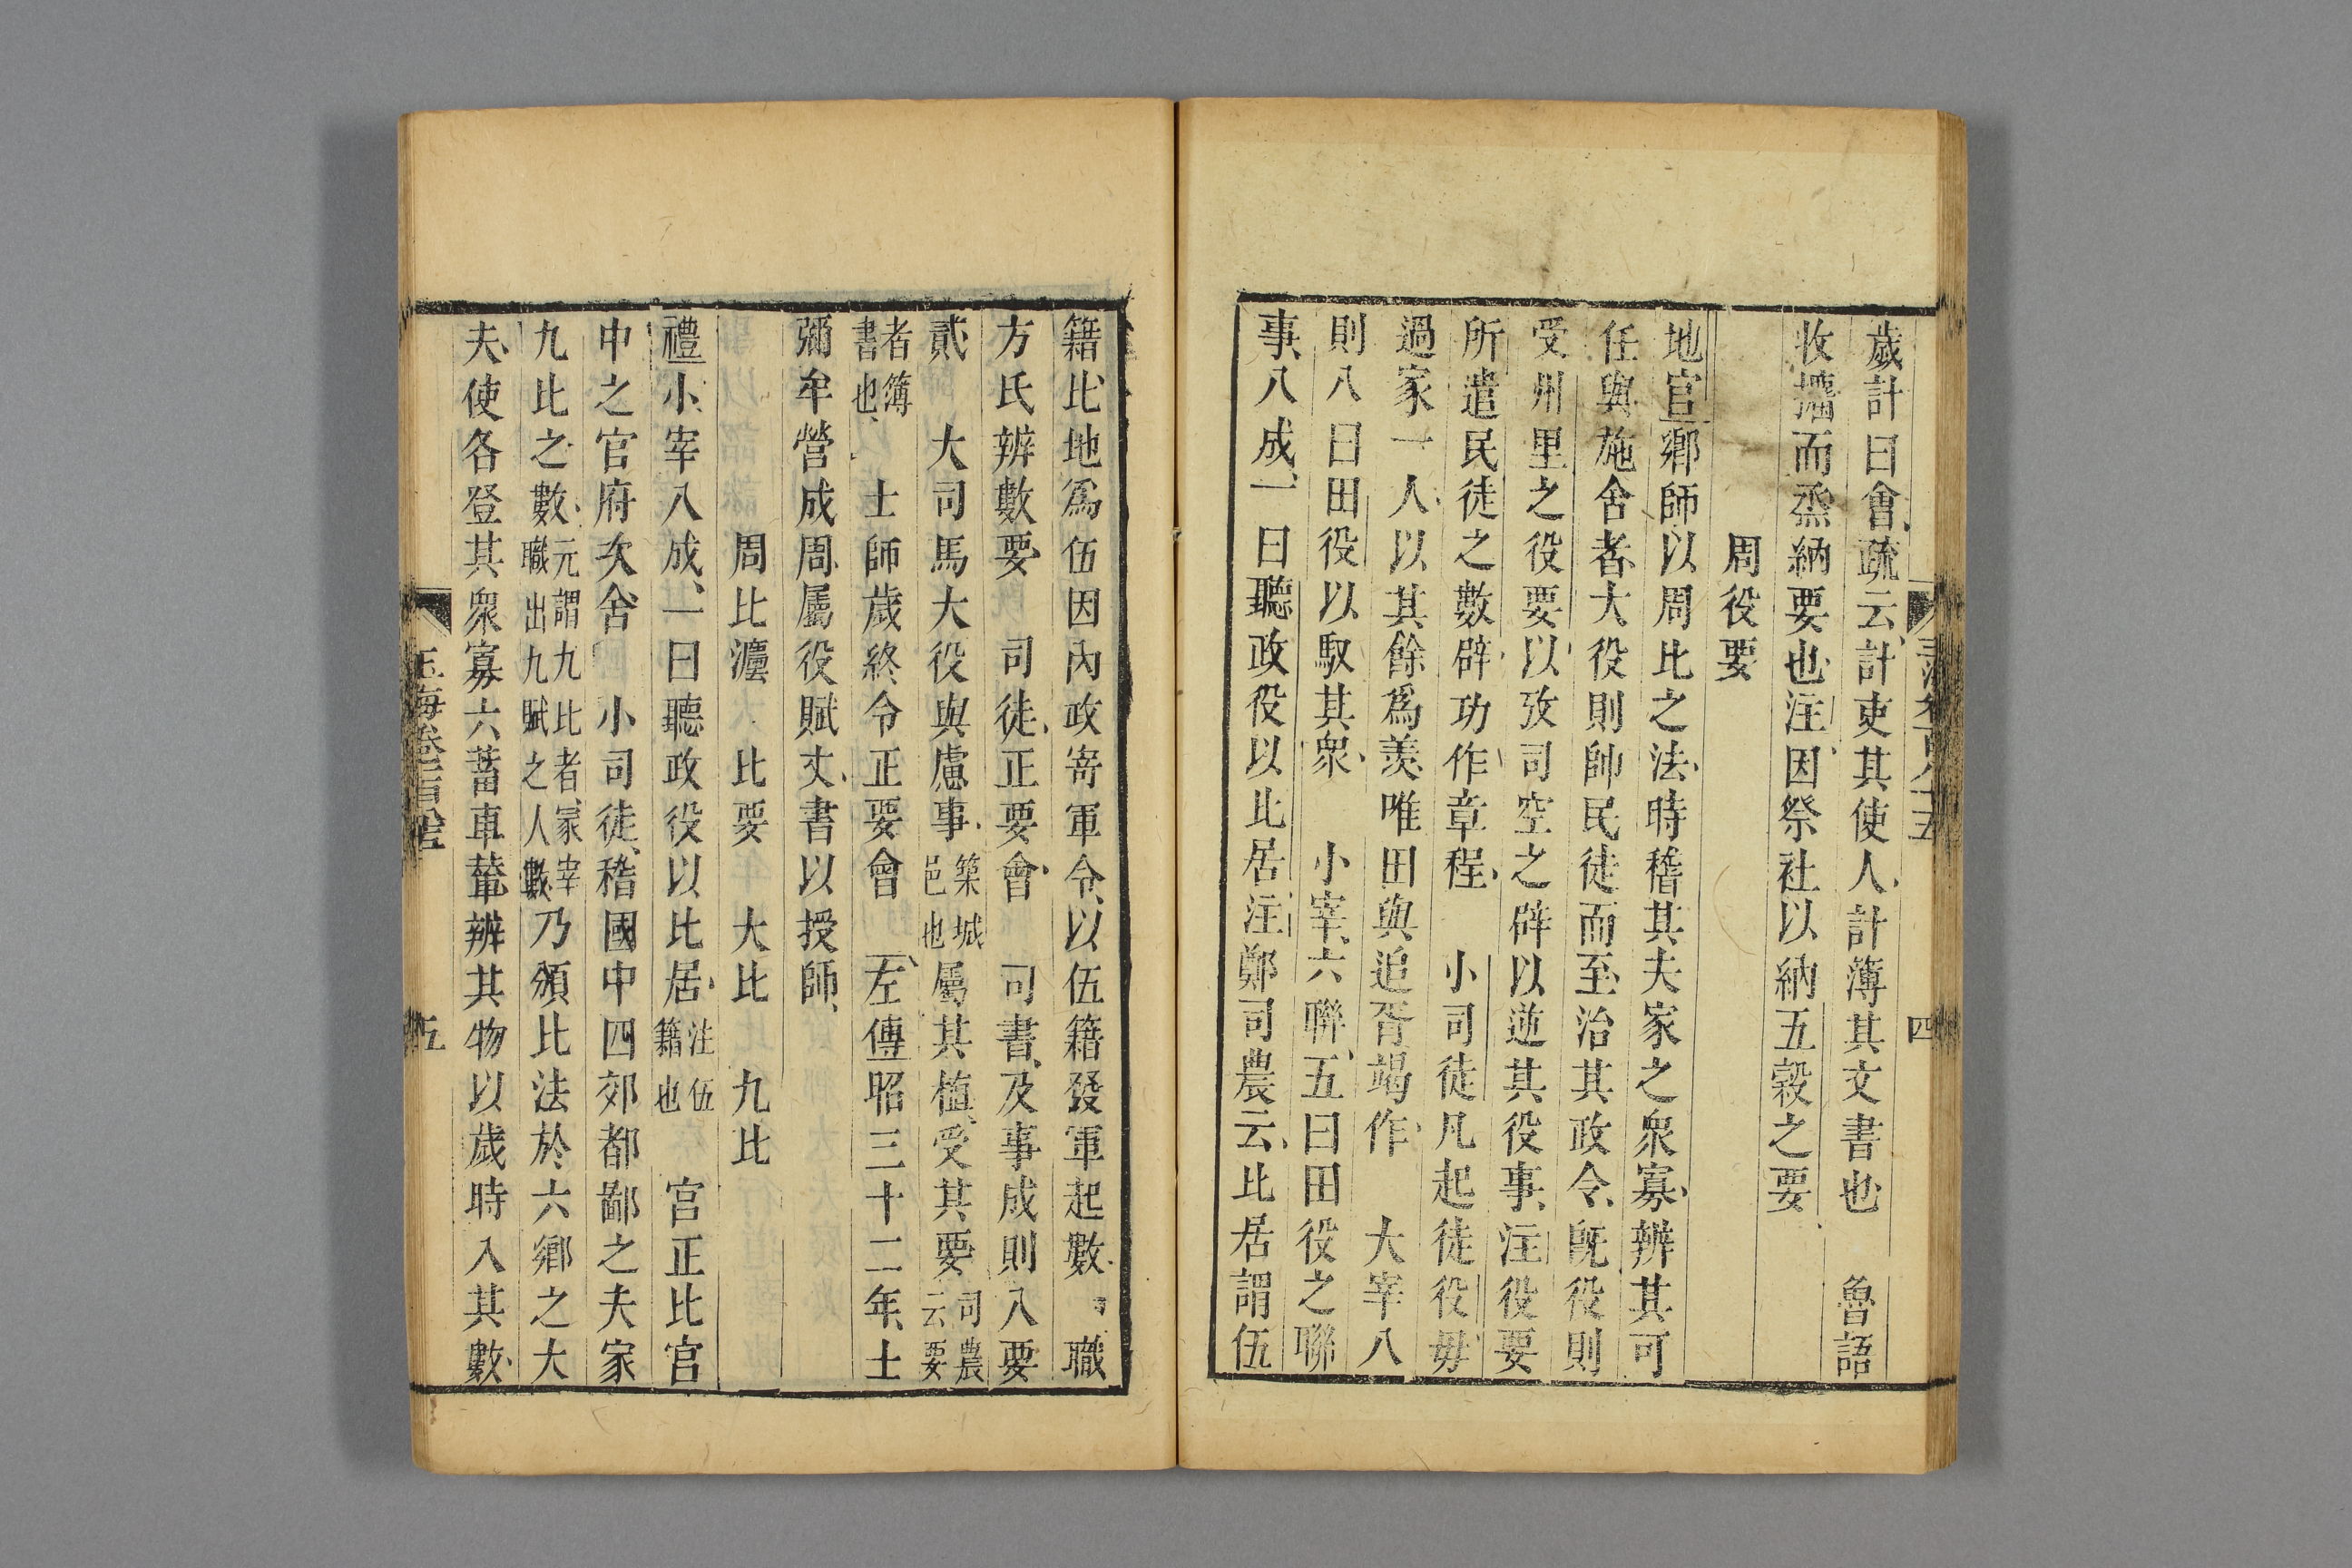 歲計曰會疏云計吏其使人計簿其文書也　魯語
收攟而烝納要也注因祭社以納五穀之要
周役要
地官鄉師以周比之法時稽其夫家之衆寡辨其可
任與施舍者大役則帥民徒而至治其政令旣役則
受州里之役要以攷司空之辟以逆其役事注役要
所遣民徒之數辟功作章程　小司徒凡起徒役毋
過家一人以其餘爲羨唯田與追胥竭作　大宰八
則八曰田役以馭其衆　小宰六聯五曰田役之聯
事八成一曰聽政役以比居注鄭司農云比居謂伍
籍比地爲伍因內政寄軍令以伍籍發軍起數　職
方氏辨數要　司徒正要會　司書及事成則入要
貳　大司馬大役與慮事築城邑也屬其植受其要司農云要
者簿書也　士師歲終令正要會　左傳昭三十二年士
彌牟營成周屬役賦丈書以授師
周比灋　比要　大比　九比
禮小宰八成一曰聽政役以比居注伍籍也　宮正比官
中之官府次舍　小司徒稽國中四郊都鄙之夫家
九比之數元謂九比者冢宰職出九賦之人數乃頒比法於六鄉之大
夫使各登其衆寡六畜車輦辨其物以歲時入其數